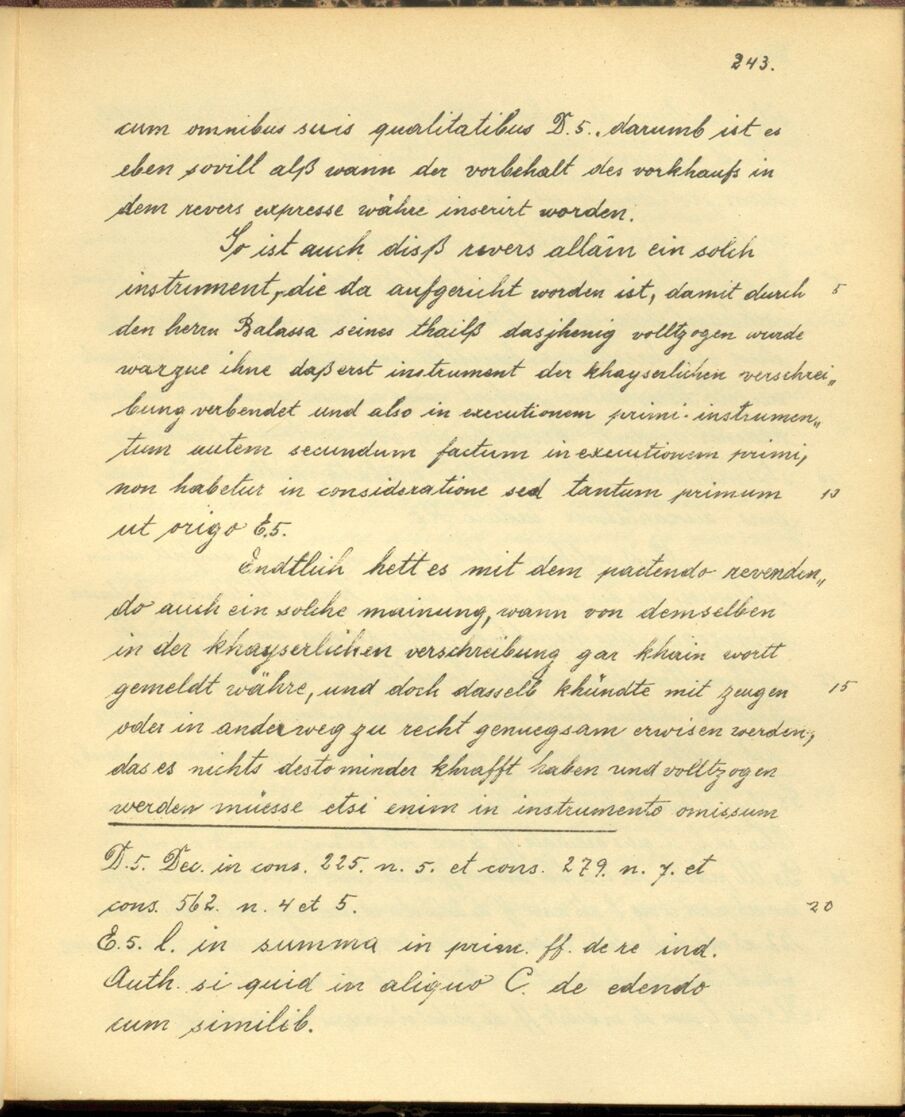 243.
cum omnibus suis qualitatibus D.5., darumb ist es
eben sovill alß wann der vorbehalt des vorkhaufs in
dem revers expresse währe inserirt worden.
So ist auch disß revers alläin ein solch
instrument, die da aufgericht worden ist, damit durch 5
den herrn Balassa seines thailß dasjhenig volltzogen wurde
warzue ihne daß erst instrument der khayserlichen verschrei„
bung verbendet und also in executionem primi instrumen„
tum autem secundum factum in executionem primi,
non habetur in consideratione sed tantum primum 10
ut origo E.5.
Endtlich hett es mit dem pactendo revenden„
do auch ein solche mainung, wann von demselben
in der khayserlichen verschreibung gar khain wortt
gemeldt währe, und doch dasselb khündte mit zeugen 15
oder in anderweg zu recht genuegsam erwisen werden,
das es nichts desto minder khrafft haben und volltzogen
werden müesse etsi enim in instrumento omissum
D.5. Dec. in cons. 225. n. 5. et cons. 279. n. 7. et
cons. 562. n. 4 et 5. 20
E.5. l. in summa in prim. ff. de re ind.
Auth. si quid in aliquo C. de edendo
cum similib.